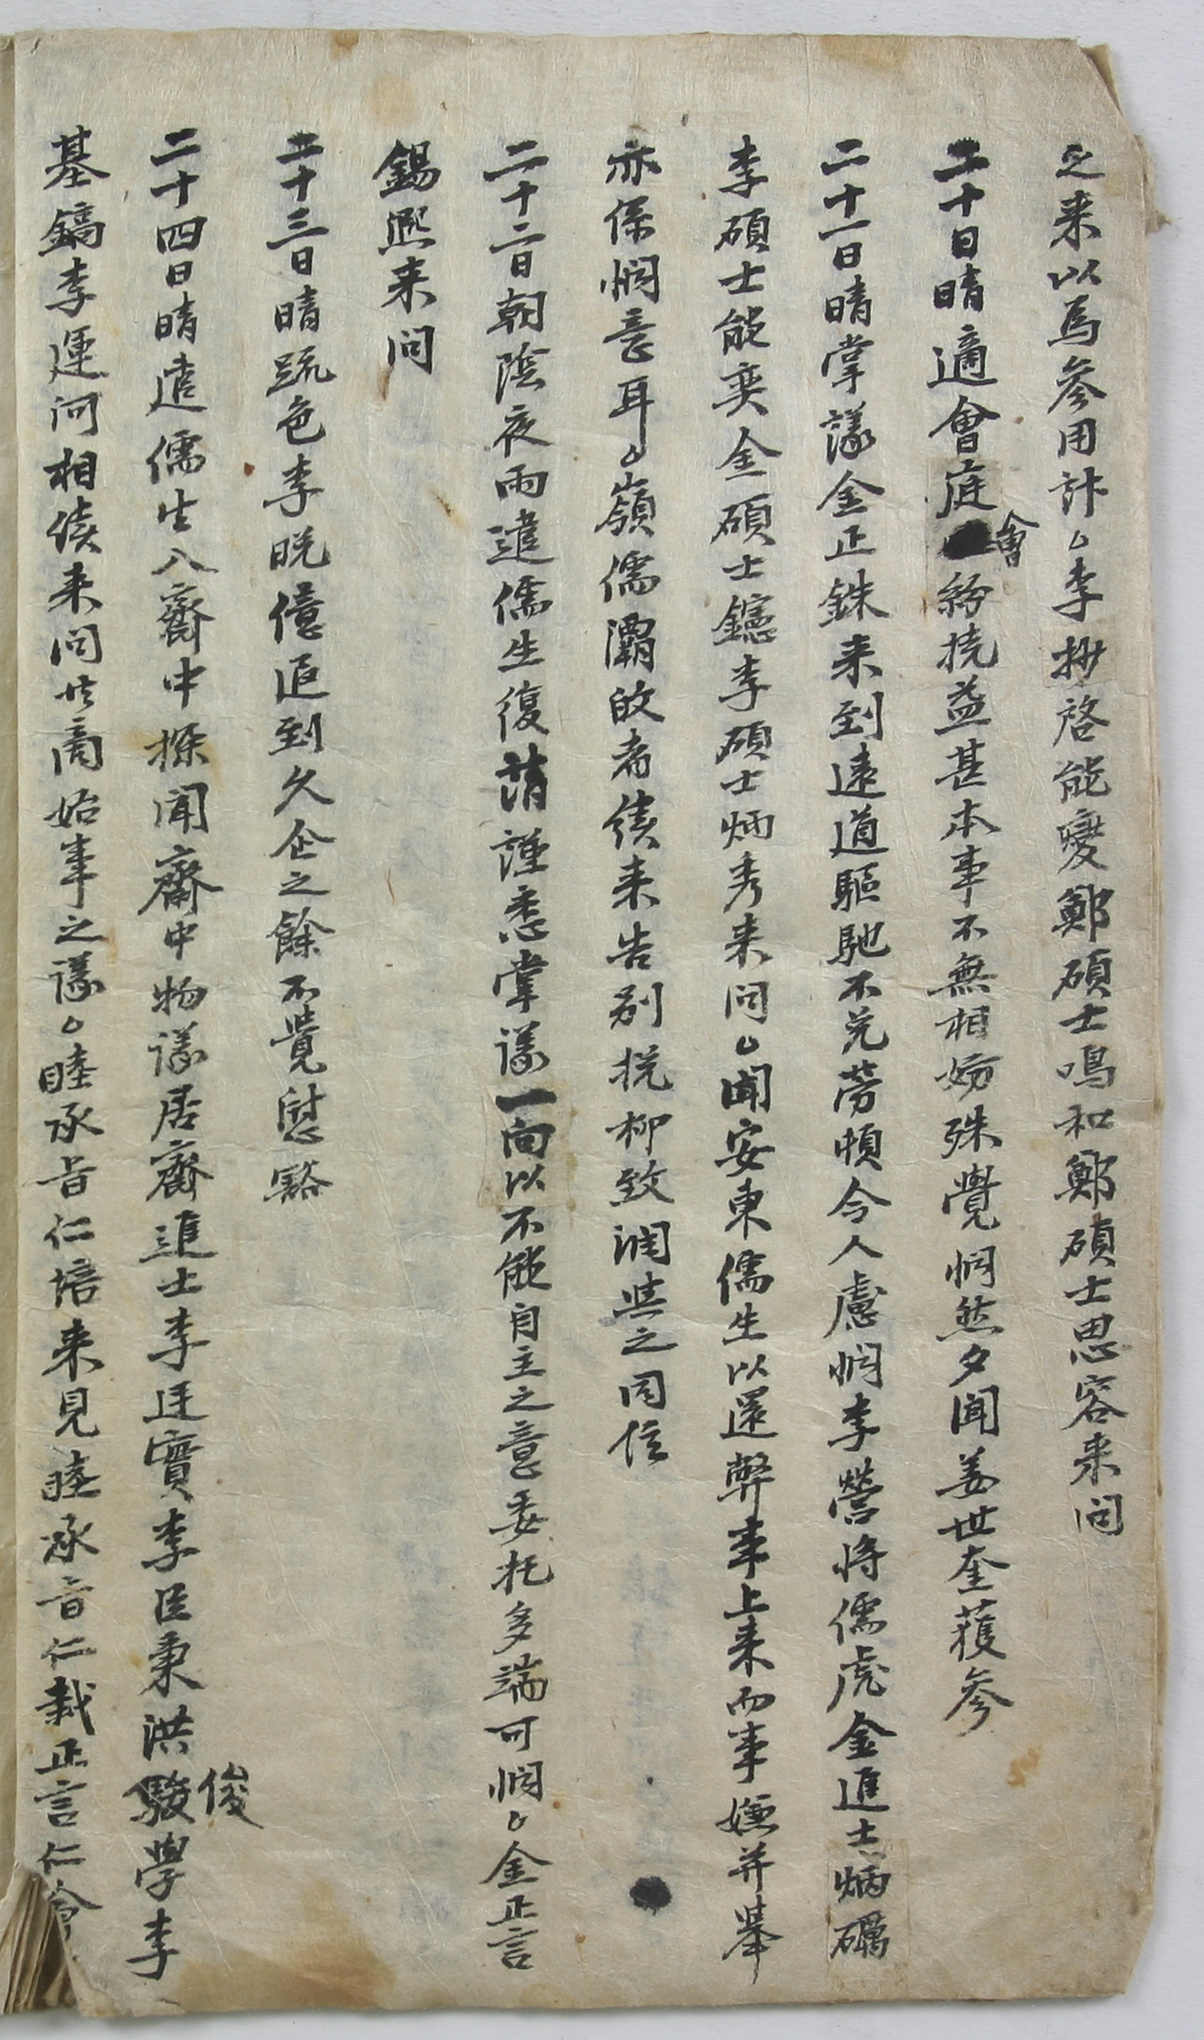 之来以爲參用計。李抄啓能燮鄭碩士鳴和鄭碩士思容来問
二十日晴適會庭會紛撓益甚本事不無相妨殊覺悯然夕聞姜世奎蒦參
二十一日晴掌議金正銖来到遠道驅馳不免勞頓令人慮悯李營將儒虎金進士炳礪
李碩士能奕金碩士鑢李碩士炳秀来問。聞安東儒生以還弊事上来而事嫌并擧
亦係悯意耳。嶺儒灞的者続来告別挽柳致潤與之同住
二十二日朝陰夜雨遣儒生復請謹悉掌議一向以不能自主之意委托多端可悯。金正言
錫熙来問
二十三日晴疏色李晩億追到久企之餘不覺慰豁
二十四日晴遣儒生八齋中探聞齋中物議居齋進士李廷實李臣秉洪駿俊學李
基鎬李運河相続来問共商始事之議。睦承旨仁培来見睦承旨仁栽正言仁會